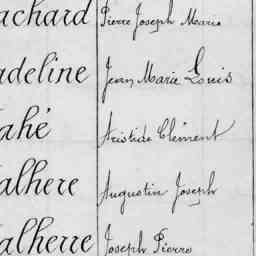 achard Pierre Joseph Marie
adeline Jean Marie Louis
ahé Aristide Clément
alhere Augustin Joseph
alherre Joseph Pierre